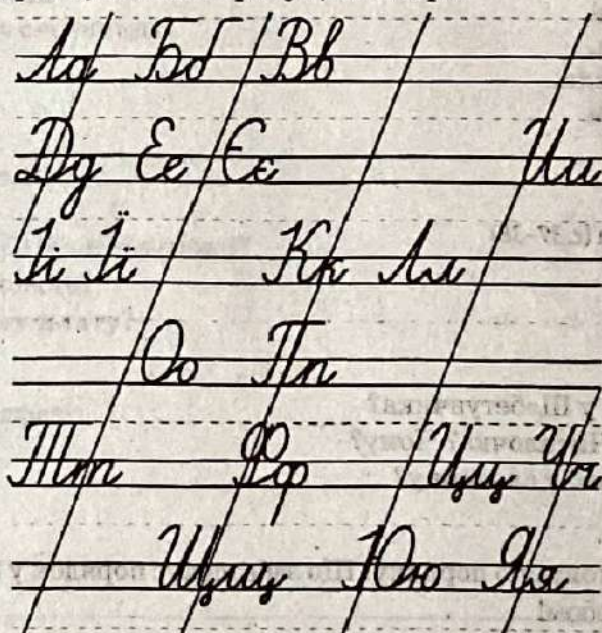 Аа Бб Вв
Дд Ее Єє Ии
Іі Її Кк Лл
Оо Пп
Тт Фф Цц Чч
Щщ Юю Яя